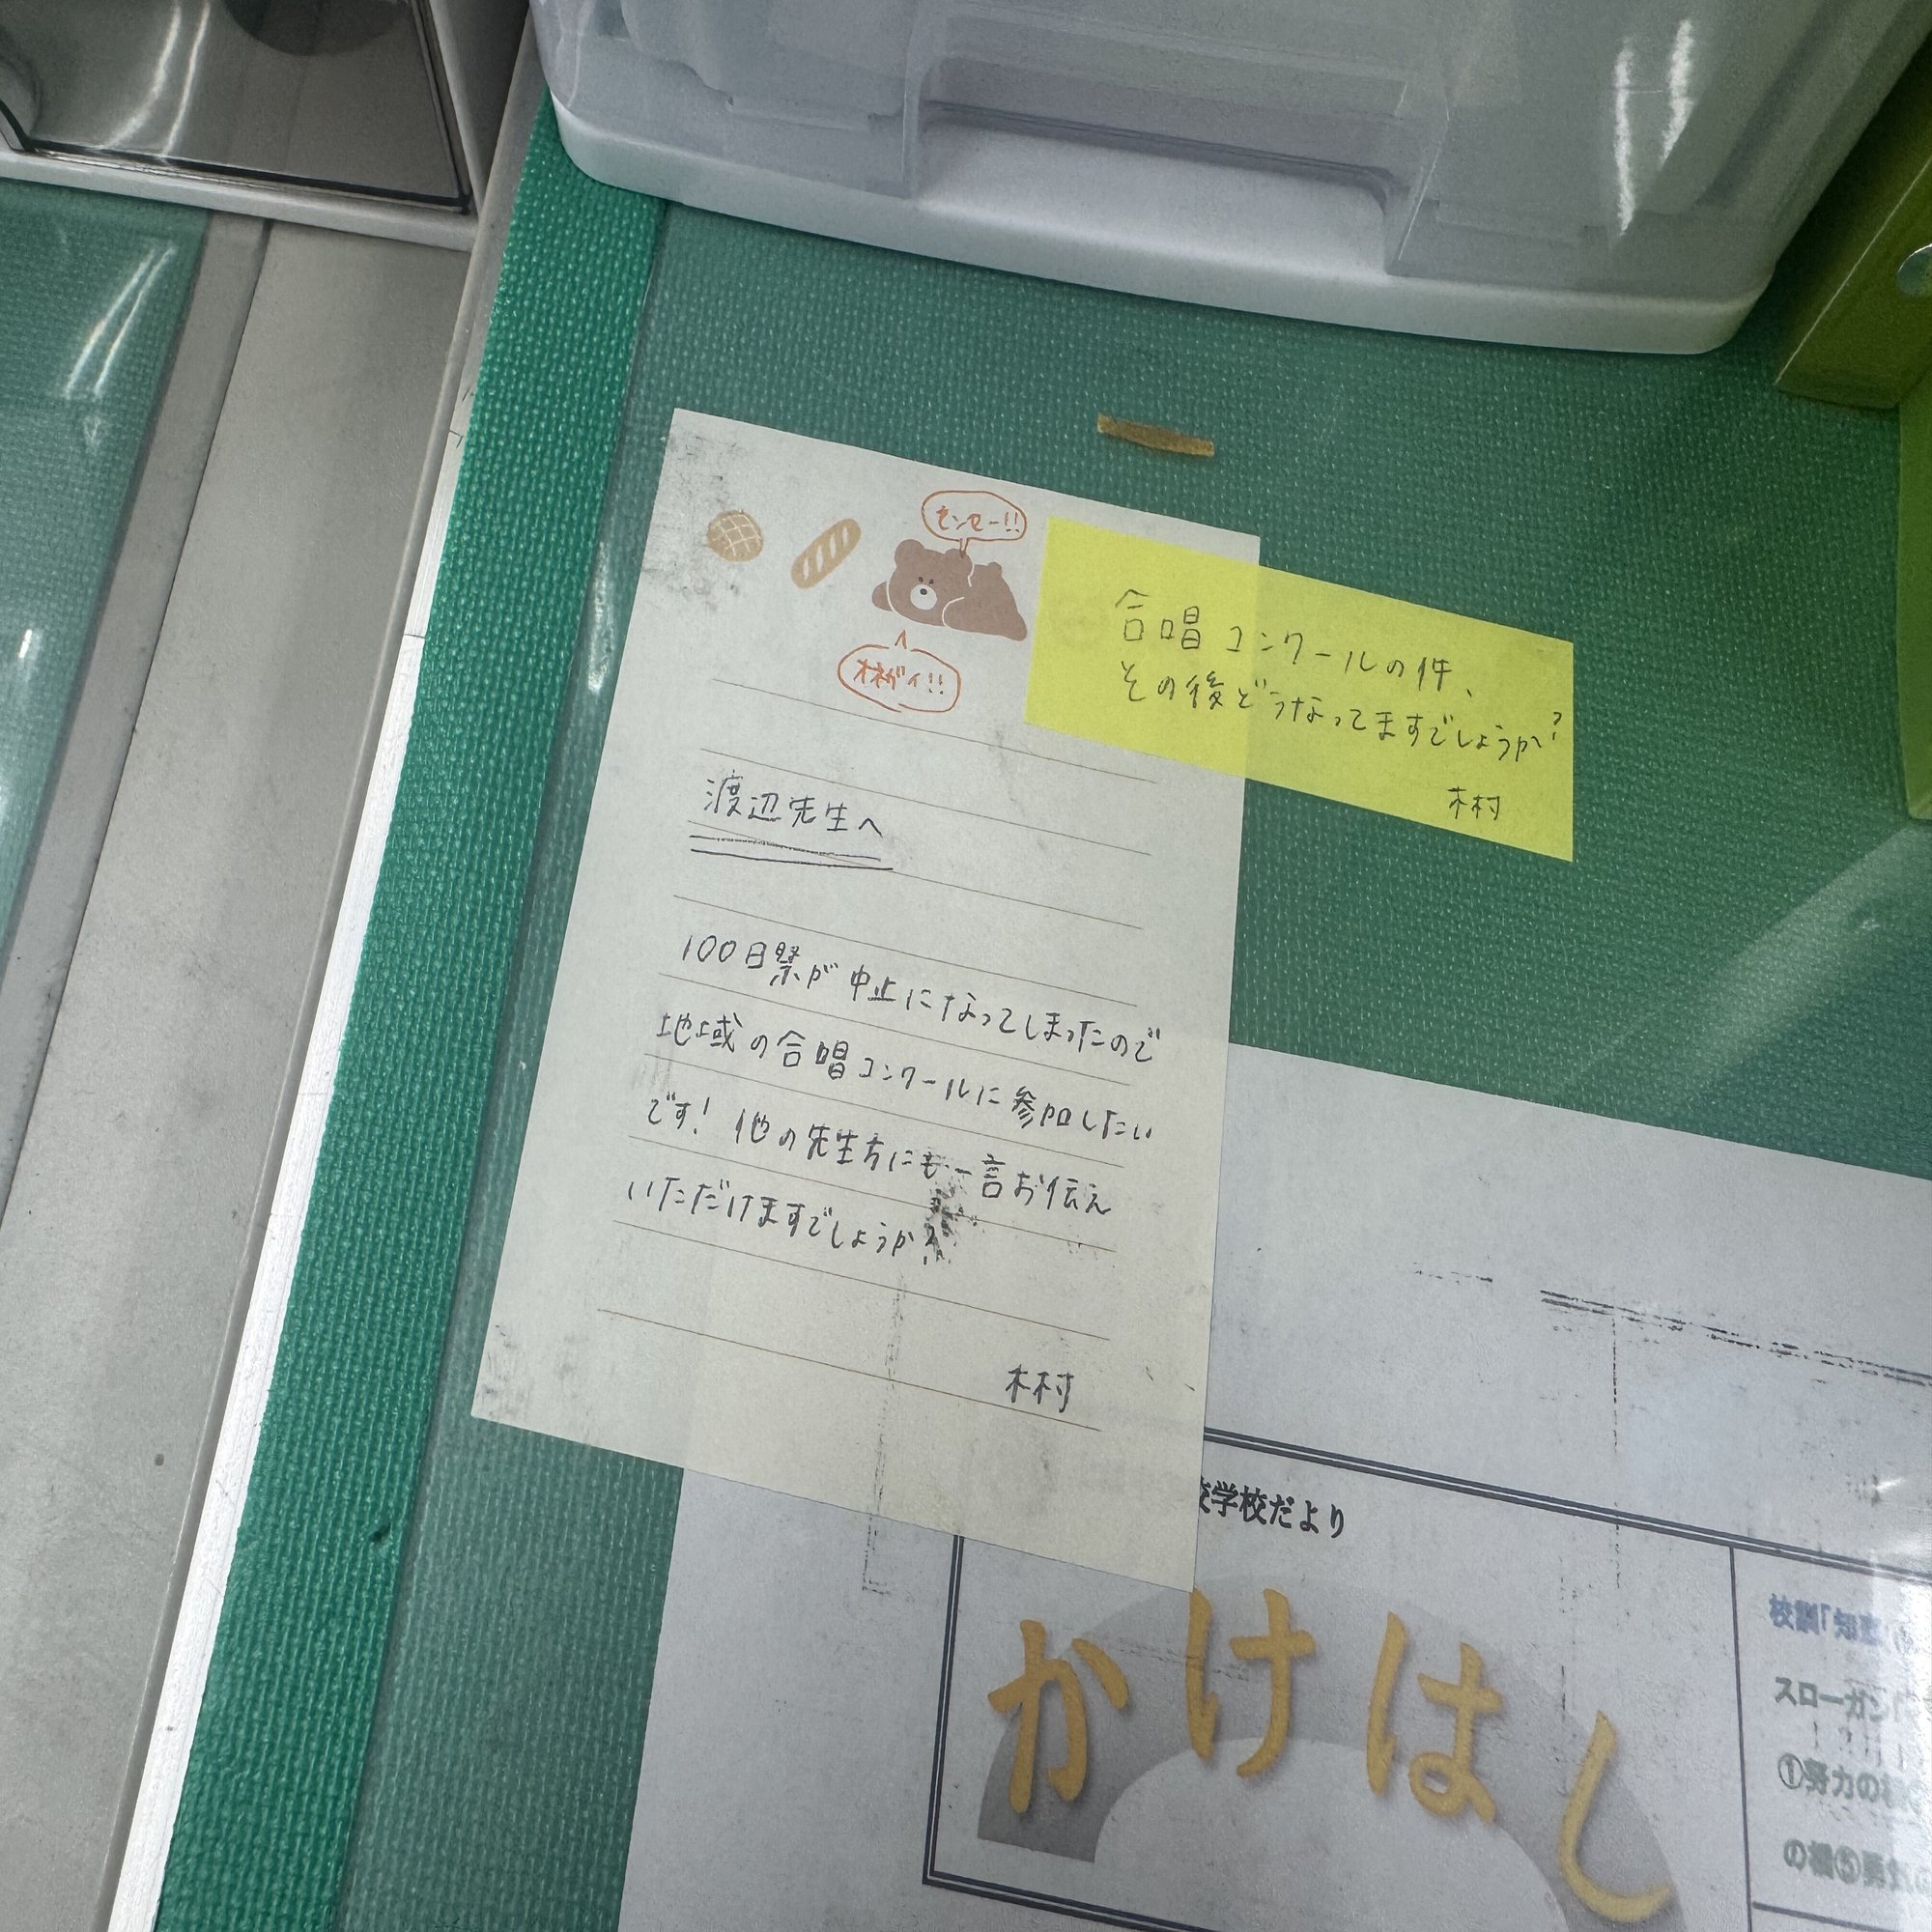 センセー!!
オネガイ!!
合唱コンクールの件、
その後どうなってますでしょうか?
木村
渡辺先生へ
100日祭が中止になってしまったので
地域の合唱コンクールに参加したい
です! 他の先生方にも一言お伝え
いただけますでしょうか?
木村
学校だより
かけはし
校訓「知
スローガン「
①努力の
の